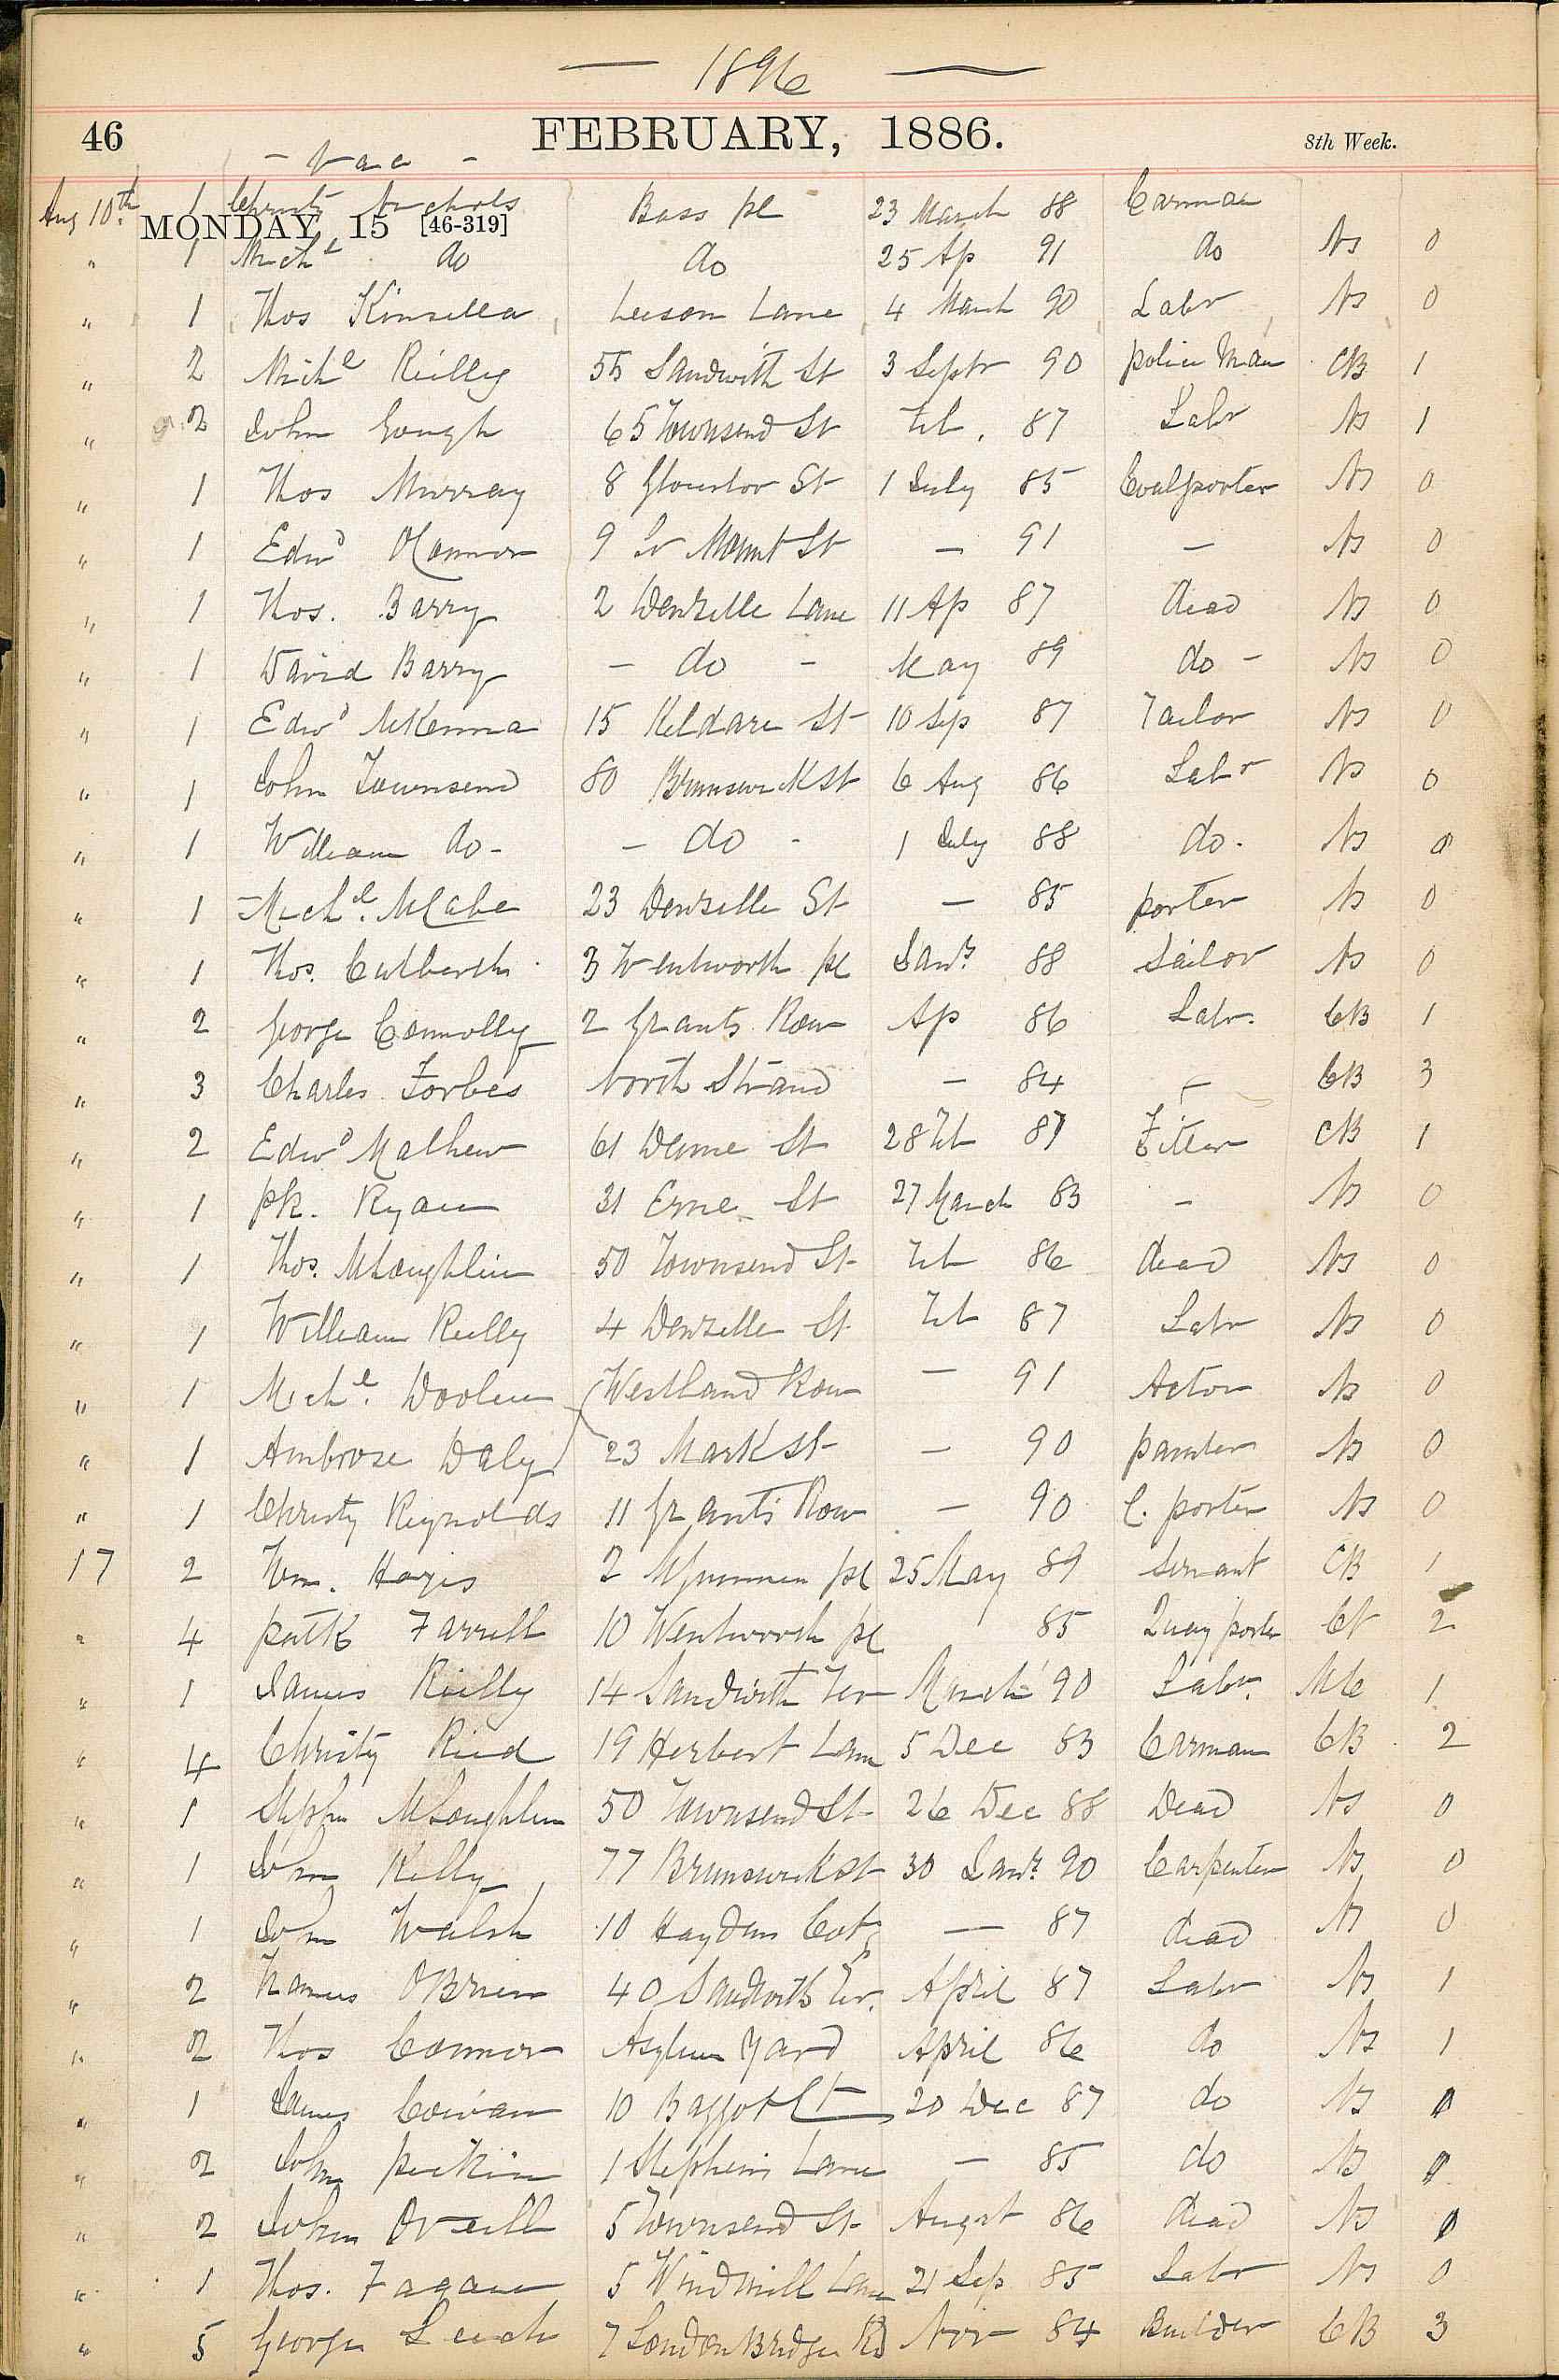 — 1896 —
46 FEBRUARY, 1886. 8th Week.
- vac -
Aug 10th 1 Christy Nichols Bass pl 23 March 88 Carman
MONDAY 15 [46-319]
" 1 Michl do do 25 Ap 91 do NS 0
" 1 Thos Kinsella Leeson Lane 4 March 90 Labr NS 0
" 2 Michl Reilly 55 Sandwith St 3 Septr 90 police Man CB 1
" 2 John Gough 65 Townsend St Feb. 87 Labr NS 1
" 1 Thos Murray 8 Gloucstor St 1 July 85 Coalporter NS 0
" 1 Edwd OConnor 9 Lr Mount St — 91 — NS 0
" 1 Thos. Barry 2 Denzille Lane 11 Ap 87 dead NS 0
" 1 David Barry - do - May 89 do - NS 0
" 1 Edwd McKenna 15 Kildare St 10 Sep 87 Tailor NS 0
" 1 John Townsend 80 Brunswick St 6 Aug 86 Labr NS 0
" 1 William do - - do - 1 July 88 do. NS 0
" 1 Michl. McCabe 23 Denzille St — 85 porter NS 0
" 1 Thos. Cutberth 3 Wentworth pl Jany 88 Sailor NS 0
" 2 George Connolly 2 Grants Row Ap 86 Labr. CB 1
" 3 Charles Forbes North Strand — 84 — CB 3
" 2 Edwd Mathew 61 Denne St 28 Feb 87 Fitter CB 1
" 1 pk. Ryan 31 Erne St 27 March 83 - NS 0
" 1 Thos. McLoughlin 50 Townsend St Feb 86 dead NS 0
" 1 William Reilly 4 Denzille St Feb 87 Labr NS 0
" 1 Michl. Doolen Westland Row — 91 Actor NS 0
" 1 Ambrose Daly 23 Mark St — 90 painter NS 0
" 1 Christy Reynolds 11 Grants Row — 90 C. porter NS 0
17 2 Wm. Hayes 2 pl 25 May 89 servant CB 1
" 4 patk Farrell 10 Wentworth pl 85 Quay porter 2
" 1 James Reilly 14 Sandwith Ter March 90 Labr. 1
" 4 Christy Reid 19 Herbert Lane 5 Dec 83 Carman CB 2
" 1 Stephen McLoughlin 50 Townsend St 26 Dec 88 Dead NS 0
" 1 John Kelly 77 Brunswick St 30 Jany 90 Carpenter NS 0
" 1 John Walsh 10 Haydens Cots — 87 dead NS 0
" 2 OBrien 40 Sandwith Ter. April 87 Labr NS 1
" 2 Thos Connor Asylum Yard April 86 do NS 1
" 1 James Cowan 10 Baggot Ct 20 Dec 87 do NS 0
" 2 John perkins 1 Stephens Lane — 85 do NS 0
" 2 John ONeill 5 Townsend St August 86 dead NS 0
" 1 Thos. Fagan 5 Windmill Lane 21 Sep 85 Labr NS 0
" 5 George Leech 7 London Bridge Rd Novr 84 Builder CB 3